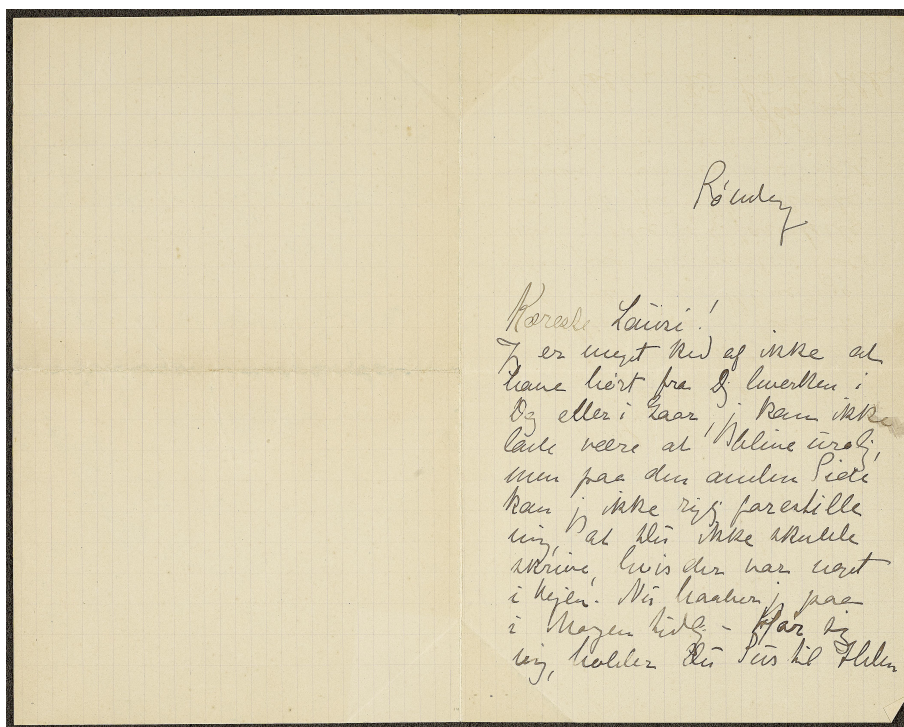 Søndag
Kæreste Lauri!
Jeg er meget ked af ikke at
have hørt fra Dig hverken i
Dag eller i Gaar, jeg kan ikke
lade være at blive urolig,
men paa den anden Side
kan jeg ikke rigtig forestille
mig, at Du ikke skulde
skrive, hvis der var noget
i Vejen. Nu haaber jeg paa
i Morgen tidlig –
mig, holder Du til